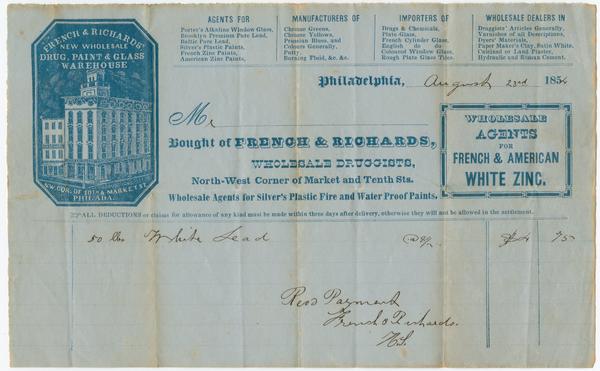 FRENCH & RICHARDS'
NEW WHOLESALE
DRUG, PAINT & GLASS
WAREHOUSE
N.W. COR. OF 10TH & MARKET ST.
PHILADA.
AGENTS FOR
Porter's Alkaline Window Glass,
Brooklyn Premium Pure Lead,
Baltic Pure Lead,
Silver's Plastic Paints,
French Zinc Paints,
American Zinc Paints,
MANUFACTURERS OF
Chrome Greens,
Chrome Yellows,
Prussian Blues, and
Colours Generally,
Putty,
Burning Fluid, &c. &c.
IMPORTERS OF
Drugs & Chemicals,
Plate Glass,
French Cylinder Glass,
English do do
Coloured Window Glass,
Rough Plate Glass Tiles.
WHOLESALE DEALERS IN
Druggists' Articles Generally,
Varnishes of all Descriptions,
Dyers' Materials,
Paper Maker's Clay, Satin White,
Calcined or Land Plaster,
Hydraulic and Roman Cement.
Philadelphia, August 23rd 1854
M
Bought of FRENCH & RICHARDS,
WHOLESALE DRUGGISTS,
North-West Corner of Market and Tenth Sts.
Wholesale Agents for Silver's Plastic Fire and Water Proof Paints.
WHOLESALE
AGENTS
FOR
FRENCH & AMERICAN
WHITE ZINC.
ALL DEDUCTIONS or claims for allowance of any kind must be made within three days after delivery, otherwise they will not be allowed in the settlement.
50 lbs White Lead @ 9½ $4 75
Recd Payment
French & Richards.